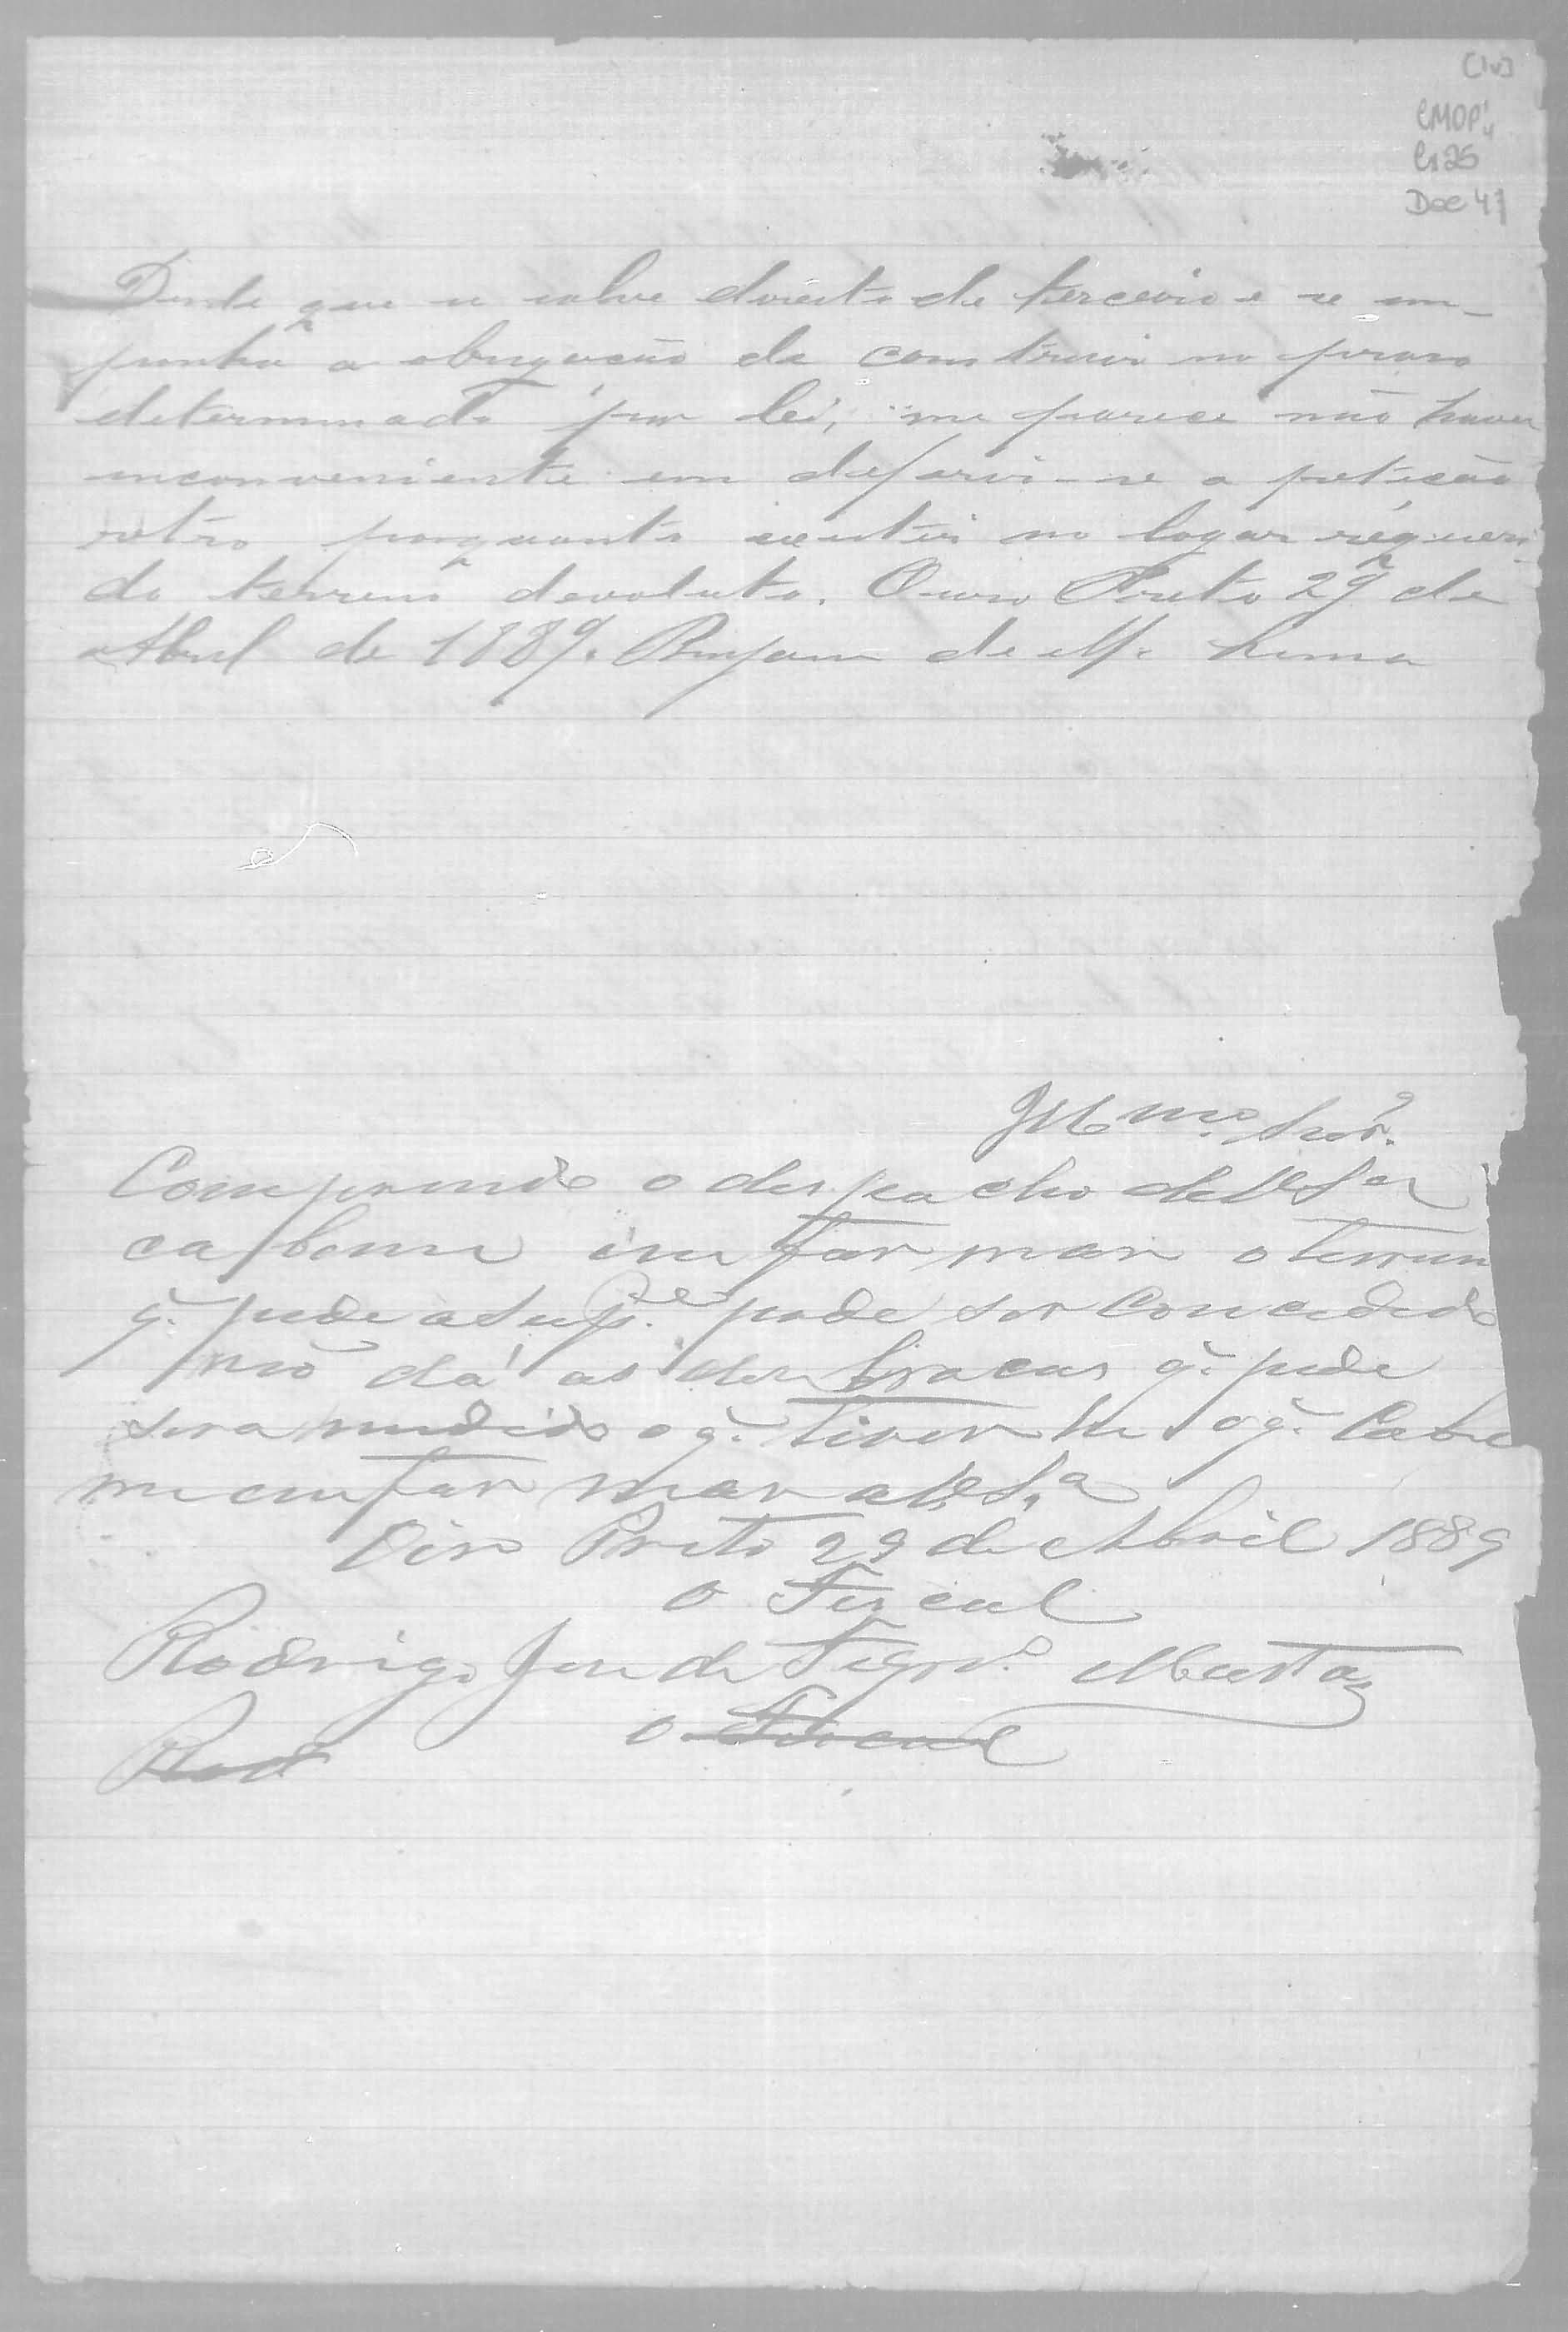 [1v]
CMOP
Cx25
Doc 41
Desde que se salve direito de terceiro e se im-
ponha a obrigação de construir no praso
determinado por lei, me parece não haver
inconveniente em deferir-se a petição
retro porquanto existir no logar requeri-
do terreno devoluto. Ouro Preto 29 de
Abril de 1889. Benjam de M. Lima
Illmo. Snr.
Comprindo o despacho de V Sa
ca bem me informar o terreno
q. pede a Supe. pode ser concedido
não dá as des braças q. pede
sera medido o q. tiver he o q. Cabe
me informar a V. Sa
Oiro Preto 29 de Abril 1889
o Fiscal
Rodrigo Jose de Figdo. Murta
o Fiscal
Rod